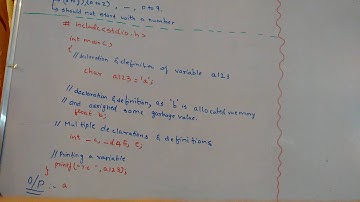 (a to z), (0 to 2), _, 0 to 9.
should not start with a number
# include<stdio.h>
int main()
{
// decleration & definition of variable a123
char a123 = 'a';
// declaration & definition, as 'b' is allocated memory
// and assigned some garbage value.
float b;
// Multiple declarations & definitions
int _c, _d45, e;
// Printing a variable
printf("%c", a123);
}
O/P :- a